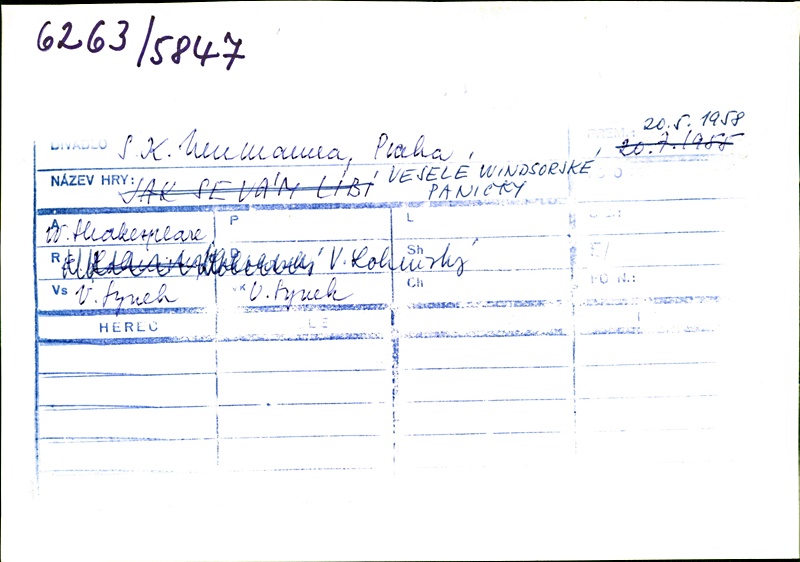 6263/5847
20.5.1958
DIVADLO S. K. Neumanna, Praha PREM.: 20.7.1955
NÁZEV HRY: JAK SE VÁM LÍBÍ VESELÉ WINDSORSKÉ
PANIČKY
A W. Shakespeare P L
R V. Lohniský Sh
Vs V. Synek VK V. Synek Ch
HEREC